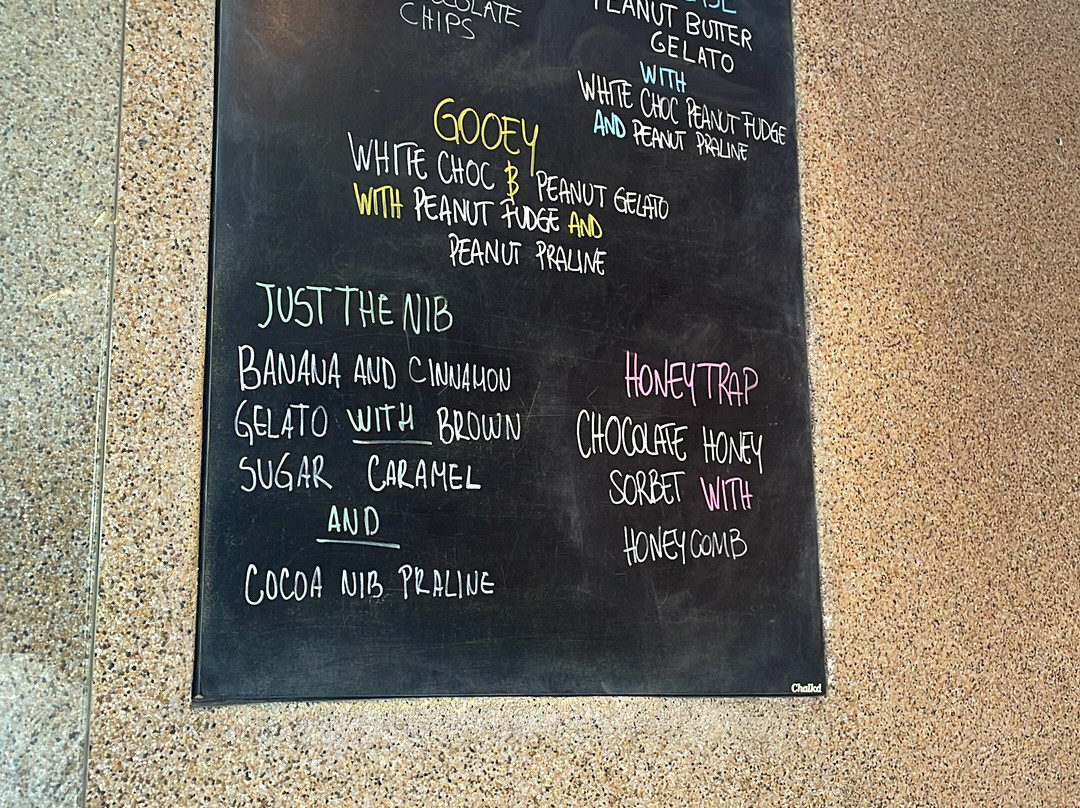 CHIPS
PEANUT BUTTER
GELATO
WITH
WHITE CHOC PEANUT FUDGE
AND PEANUT PRALINE
GOOEY
WHITE CHOC & PEANUT GELATO
WITH PEANUT FUDGE AND
PEANUT PRALINE
JUST THE NIB
BANANA AND CINNAMON
GELATO WITH BROWN
SUGAR CARAMEL
AND
COCOA NIB PRALINE
HONEY TRAP
CHOCOLATE HONEY
SORBET WITH
HONEYCOMB
Chalkd